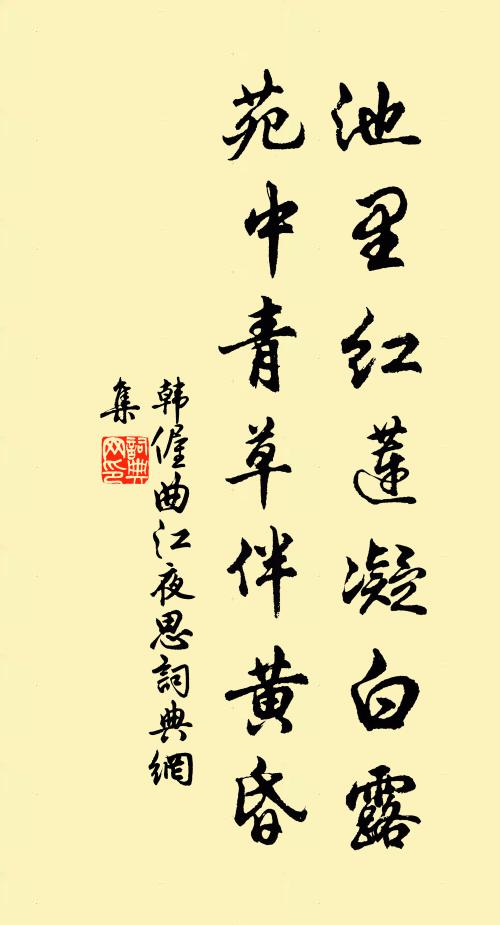 池里红蓮凝白露
苑中青草伴黄昏
韩偓曲江夜思詞典網
集
詞典
网印